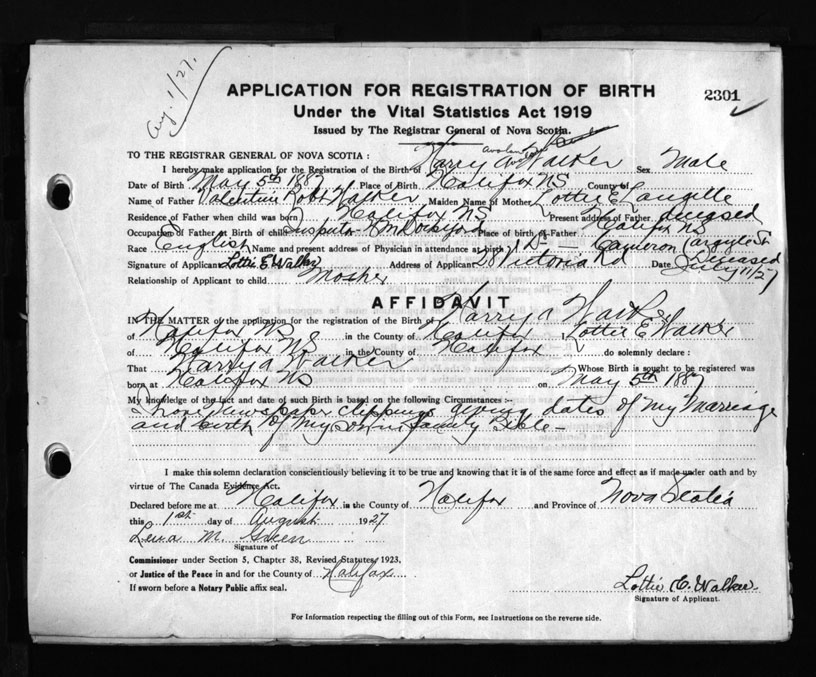 Aug. 1/27.
APPLICATION FOR REGISTRATION OF BIRTH
2301
Under the Vital Statistics Act 1919
Issued by The Registrar General of Nova Scotia.
TO THE REGISTRAR GENERAL OF NOVA SCOTIA :
I hereby make application for the Registration of the Birth of Harry a Walker Sex Male
Date of Birth May 5th 1887 Place of Birth Halifax NS County of
Name of Father Valentine Robt Walker Maiden Name of Mother Lottie E Langille
Residence of Father when child was born Halifax NS Present address of Father deceased
Occupation of Father at Birth of child Place of birth of Father Halifax NS
Race English Name and present address of Physician in attendance at birth Dr Cameron Argyle St
Deceased
Signature of Applicant Lottie E Walker Address of Applicant 28 Victoria Rd Date July 11/27
Relationship of Applicant to child Mother
AFFIDAVIT
IN THE MATTER of the application for the registration of the Birth of Harry a Walker
of Halifax NS in the County of Halifax I Lottie E Walker
of Halifax NS in the County of Halifax do solemnly declare :
That Harry a Walker Whose Birth is sought to be registered was
born at Halifax NS on May 5th 1887
My knowledge of the fact and date of such Birth is based on the following Circumstances :-
I have Newspaper clippings giving dates of my Marriage
and birth of my son in family Bible -
I make this solemn declaration conscientiously believing it to be true and knowing that it is of the same force and effect as if made under oath and by
virtue of The Canada Evidence Act.
Declared before me at Halifax in the County of Halifax and Province of Nova Scotia
this 1st day of August 1927
Lena M. Green
Signature of
Commissioner under Section 5, Chapter 38, Revised Statutes, 1923,
or Justice of the Peace in and for the County of Halifax
If sworn before a Notary Public affix seal.
Lottie E. Walker
Signature of Applicant.
For Information respecting the filling out of this Form, see Instructions on the reverse side.